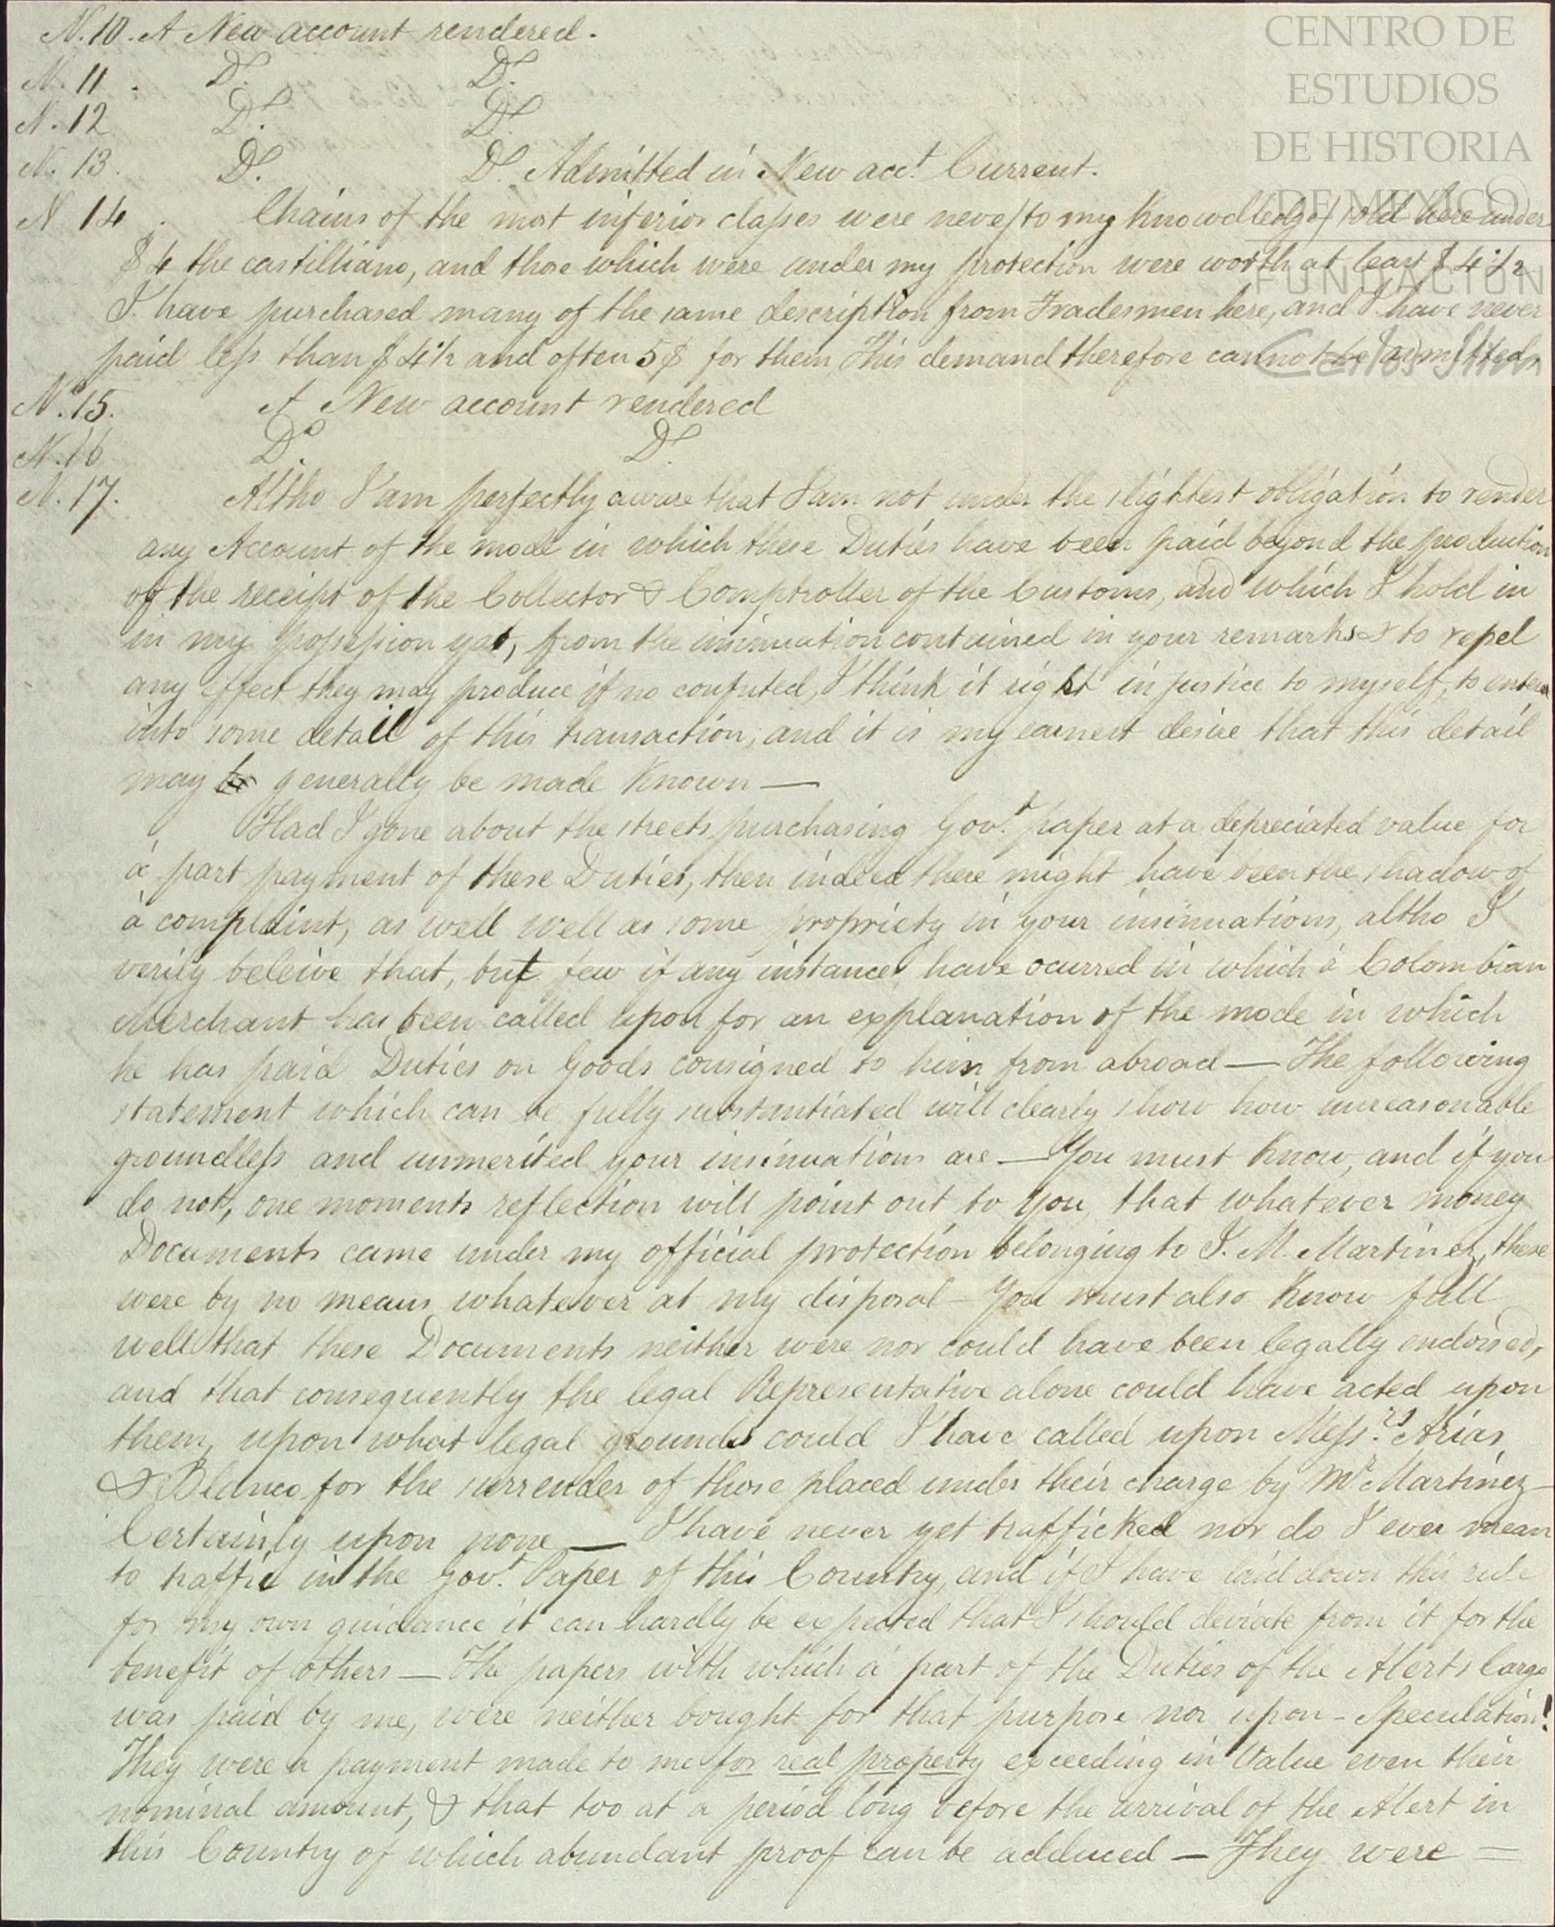 N. 10. A New account rendered.
N. 11 . Do. Do.
N. 12 Do. Do.
N. 13. Do. Do. Admitted in New acct. Current.
N 14 . Chains of the most inferior classes were never (to my Knowledge) sold here under
$4 the castilliano, and those which were under my protection were worth at least $4 1/2
I have purchased many of the same description from Tradesmen here, and I have never
paid less than $4 1/2 and often 5$ for them, This demand therefore cannot be admitted,
N. 15. A New account rendered
N. 16 Do Do.
N. 17. Altho I am perfectly aware that I am not under the slightest obligation to render
any Account of the mode in which these Duties have been paid beyond the production
of the receipt of the Collector & Comptroller of the Customs, and which I hold in
in my possession yet, from the insinuation contained in your remarks & to repel
any effect they may produce if no confuted, I think it right in justice to myself, to enter
into some detail of this transaction, and it is my earnest desire that this detail
may be generally be made Known —
Had I gone about the streets purchasing Govt. paper at a depreciated value for
a part payment of these Duties, then indeed there might have been the shadow of
a complaint, as well well as some propriety in your insinuations, altho I
verily beleive that, but few if any instances have ocurred in which a Colombian
Merchant has been called upon for an explanation of the mode in which
he has paid Duties on Goods consigned to him from abroad — The following
statement which can be fully substantiated will clearly show how unreasonable
groundless and unmerited your insinuations are — You must Know, and if you
do not, one moments reflection will point out to you, that whatever money
Documents came under my official protection belonging to J. M. Martinez, these
were by no means whatever at my disposal — You must also Know full
well that these Documents neither were nor could have been legally endorsed,
and that consequently the legal Representative alone could have acted upon
them, upon what legal grounds could I have called upon Messrs. Arias
& Blanco for the surrender of those placed under their charge by Mr Martinez —
Certainly upon none — I have never yet trafficked nor do I ever mean
to traffic in the Govt. Paper of this Country, and if I have laid down this rule
for my own guidance it can hardly be expected that I should deviate from it for the
benefit of others — The papers with which a part of the Duties of the Alerts Cargo
was paid by me, were neither bought for that purpose nor upon - Speculation!
They were a payment made to me for real property exceeding in Value even their
nominal amount, & that too at a period long before the arrival of the Alert in
this Country of which abundant proof can be adduced — They were =
CENTRO DE
ESTUDIOS
DE HISTORIA
DE MEXICO
FUNDACIÓN
Carlos Slim